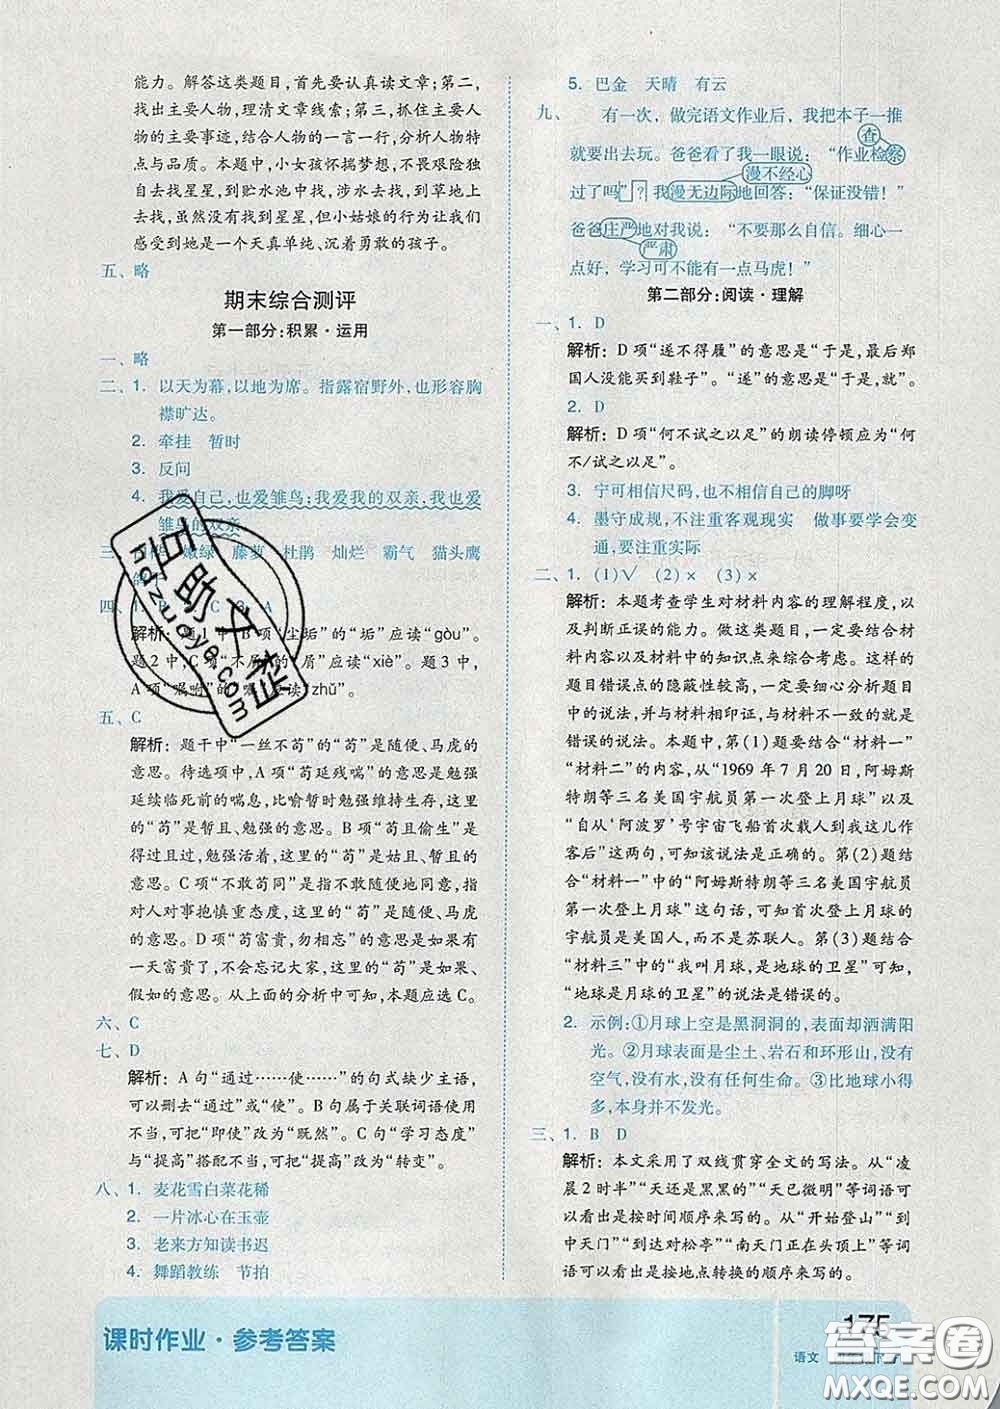 能力。解答这类题目,首先要认真读文章;第二,
找出主要人物,理清文章线索;第三,抓住主要人
物的主要事迹,结合人物的一言一行,分析人物特
点与品质。本题中,小女孩怀揣梦想,不畏艰险独
自去找星星,到贮水池中找,涉水去找,到草地上
去找,虽然没有找到星星,但小姑娘的行为让我们
感受到她是一个天真单纯、沉着勇敢的孩子。
五、略
期末综合测评
第一部分:积累·运用
一、略
二、1. 以天为幕,以地为席。指露宿野外,也形容胸
襟旷达。
2. 牵挂 暂时
3. 反问
4. 我爱自己,也爱雏鸟;我爱我的双亲,也爱
雏鸟的双亲
三、 嫩绿 藤萝 杜鹃 灿烂 霸气 猫头鹰
四、1. B 2. C 3. A
解析:题1中,B项“尘垢”的“垢”应读“gòu”。
题2中,C项“不屑”的“屑”应读“xiè”。题3中,
A项“嘱咐”的“嘱”应读“zhǔ”。
五、C
解析:题干中“一丝不苟”的“苟”是随便、马虎的
意思。待选项中,A项“苟延残喘”的意思是勉强
延续临死前的喘息,比喻暂时勉强维持生存,这里
的“苟”是暂且、勉强的意思。B项“苟且偷生”是
得过且过,勉强活着,这里的“苟”是姑且、暂且的
意思。C项“不敢苟同”是指不敢随便地同意,指
对人对事抱慎重态度,这里的“苟”是随便、马虎
的意思。D项“苟富贵,勿相忘”的意思是如果有
一天富贵了,不会忘记大家,这里的“苟”是如果、
假如的意思。从上面的分析中可知,本题应选C。
六、C
七、D
解析:A句“通过……使……”的句式缺少主语,
可以删去“通过”或“使”。B句属于关联词语使用
不当,可把“即使”改为“既然”。C句“学习态度”
与“提高”搭配不当,可把“提高”改为“转变”。
八、1. 麦花雪白菜花稀
2. 一片冰心在玉壶
3. 老来方知读书迟
4. 舞蹈教练 节拍
5. 巴金 天晴 有云
九、 有一次,做完语文作业后,我把本子一推
查
就要出去玩。爸爸看了我一眼说:“作业检察
漫不经心
过了吗”?我漫无边际地回答:“保证没错!”
爸爸庄严地对我说:“不要那么自信。细心一
严肃
点好,学习可不能有一点马虎!”
第二部分:阅读·理解
一、1. D
解析:D项“遂不得履”的意思是“于是,最后郑
国人没能买到鞋子”。“遂”的意思是“于是,就”。
2. D
解析:D项“何不试之以足”的朗读停顿应为“何
不/试之以足”。
3. 宁可相信尺码,也不相信自己的脚呀
4. 墨守成规,不注重客观现实 做事要学会变
通,要注重实际
二、1. (1)√ (2)× (3)×
解析:本题考查学生对材料内容的理解程度,以
及判断正误的能力。做这类题,一定要结合材料
内容以及材料中的知识点来综合考虑。这样的
题目错误点的隐蔽性较高,一定要细心分析题目
中的说法,并与材料相印证,与材料不一致的就是
错误的说法。本题中,第(1)题要结合“材料一”
“材料二”的内容,从“1969年7月20日,阿姆斯
特朗等三名美国宇航员第一次登上月球”以及
“自从‘阿波罗’号宇宙飞船首次载人到我这儿作
客后”这两句,可知该说法是正确的。第(2)题结
合“材料一”中的“阿姆斯特朗等三名美国宇航员
第一次登上月球”这句话,可知首次登上月球的
宇航员是美国人,而不是苏联人。第(3)题结合
“材料三”中的“我叫月球,是地球的卫星”可知,
“地球是月球的卫星”的说法是错误的。
2. 示例:①月球上空是黑洞洞的,表面却洒满阳
光。②月球表面是尘土、岩石和环形山,没有
空气,没有水,没有任何生命。③比地球小得
多,本身并不发光。
三、1. B D
解析:本文采用了双线贯穿全文的写法。从“凌
晨2时半”“天还是黑黑的”“天已微明”等词语可
以看出是按时间顺序来写的。从“开始登山”“到
中天门”“到达对松亭”“南天门正在头顶上”等词
语可以看出是按地点转换的顺序来写的。
课时作业·参考答案
175
语文
答案圈
MXQE.COM
互助文档
hdzuoye.com